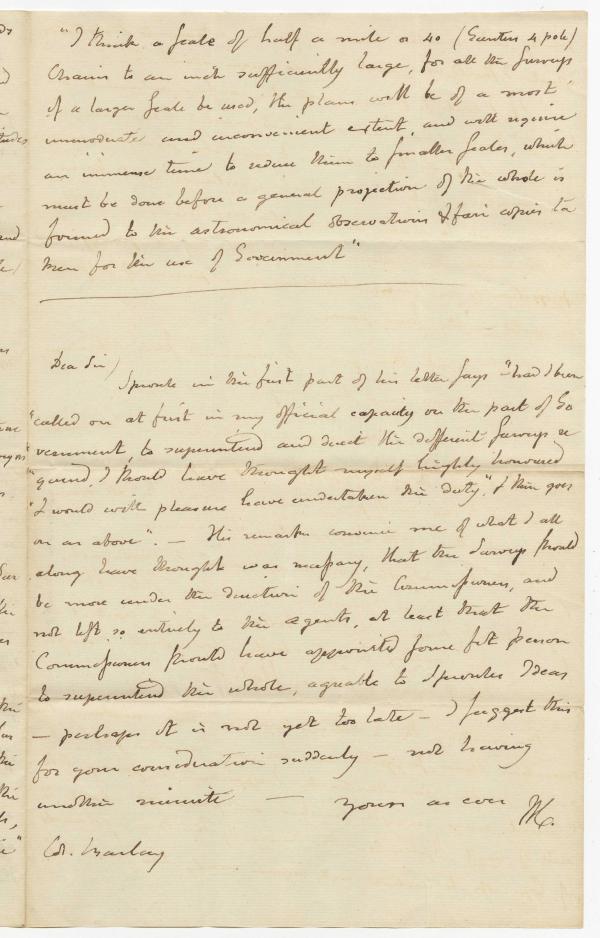 "I think a Scale of half a mile or 40 (Gunters 4 pole)
Chains to an inch sufficiently large, for all the Surveys
if a larger Scale be used, the plans will be of a most
immoderate and inconvenient extent, and will require
an immense time to reduce them to smaller scales, which
must be done before a general projection of the whole is
formed to the astronomical observations & fair copies ta
ken for the use of Government"
Dear Sir)
Sproule in the first part of his letter says "had I been
"called on at first in my official capacity on the part of Go
vernment, to superintend and direct the different Surveys re
"quired, I should have thought myself highly honoured
"I would with pleasure have undertaken the duty", & then goes
on as above". — His remarks convince me of what I all
along have thought was necessary, that the Surveys should
be more under the direction of the Commissioners, and
not left so entirely to the agents, at least that the
Commissioners should have appointed some fit person
to superintend the whole, agreable to Sproules Ideas
— perhaps it is not yet too late — I suggest this
for your consideration suddenly — not having
another minute — yours as ever
Col.